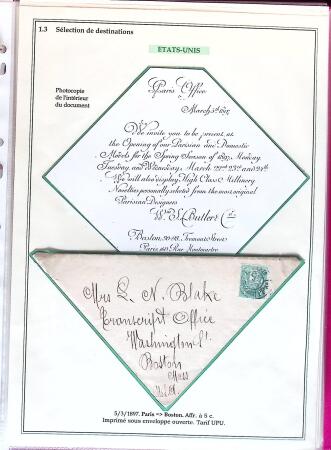 1.3 Sélection de destinations
ETATS-UNIS
Photocopie
de l'intérieur
du document
Paris Office
March 5th 1897
We invite you to be present, at
the Opening of our Parisian and Domestic
Models for the Spring Season of 1897, Monday,
Tuesday and Wednesday, March 22nd 23rd and 24th
We will also display High Class Millinery
Novelties personally selected from the most original
Parisian Designers
Wm S. Butler & Co.
Boston, Tremont Street
Paris Rue Montmartre
Mrs L. N. Blake
Transcript Office
Washington St.
Boston
Mass
U.S.A.
5/3/1897. Paris => Boston. Affr. à 5 c.
Imprimé sous enveloppe ouverte. Tarif UPU.